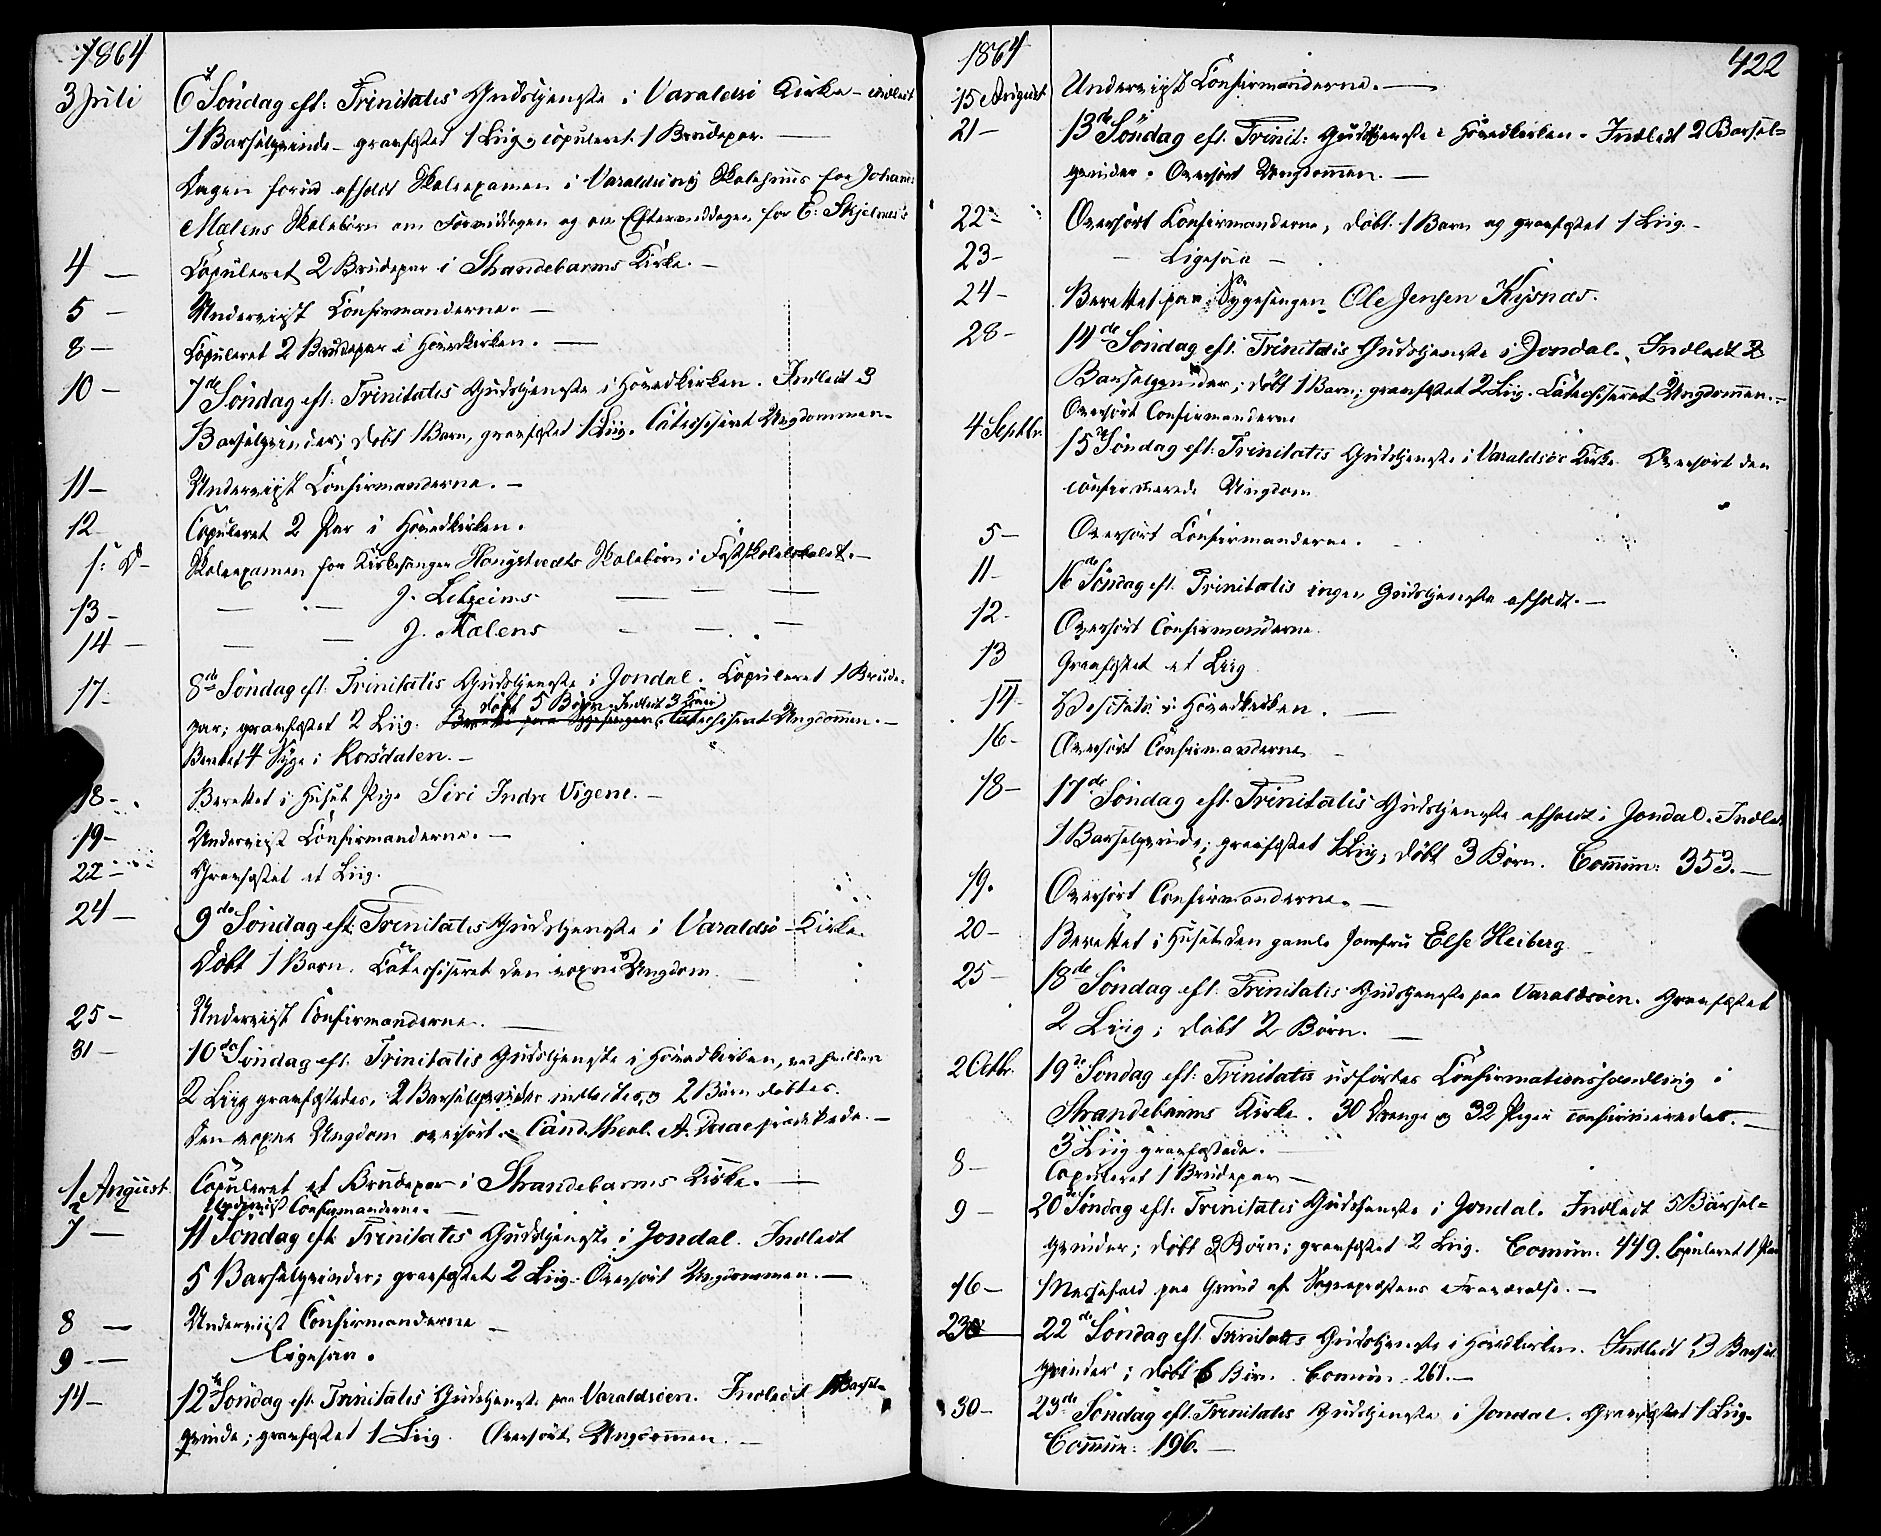 1864
3 Juli 6te Söndag eft: Trinitatis Gudstjeneste i Varaldsö Kirke – indledt
1 Barselqvinde – graefæstet 1 Liig, copuleret 1 Brudepar. —
Dagen forud afholdt Skoleexamen i Varaldsöens Skolehuus for Johann
Mælens Skolebörn om Formiddagen og om Eftermiddagen for E: Skjelnes's
4 — Copuleret 2 Brudepar i Strandebarms Kirke. —
5 — Underviist Confirmanderne. —
8 — Copuleret 2 Brudepar i Hovedkirken. —
10 — 7de Söndag eft: Trinitatis Gudstjeneste i Hovedkirken. Indledt 3
Barselqvinder; döbt 1 Barn, graefæstet 1 Liig. Catechiseret Ungdommen.
11 — Underviist Confirmanderne. —
12 Copuleret 2 Par i Hovedkirken.
s: D – Skoleexamen for Kirkesanger Haugstvedts Skolebörn i Fastskolelokalet. —
13 – — — J. Letveims — — —
14 — — — J. Mælens — — —
17 – 8de Söndag eft: Trinitatis Gudstjeneste i Jondal. Copuleret 1 Brude-
döbt 5 Börn. Indledt 3 Koner
par; graefæstet 2 Liig. Berettet paa Sygesengen, Catechiseret Ungdommen. —
Berettet 4 Syge i Korsdalen. —
18 – Berettet i Huset Pige Siri Indre Vigene. —
19 – Underviist Confirmanderne. —
22 – Graefæstet et Liig.
24 — 9de Söndag eft: Trinitatis Gudstjeneste i Varaldsö – Kirke.
Döbt 1 Barn. Catechiseret den voxne Ungdom. —
25 – Underviist Confirmanderne. —
31 – 10de Söndag eft: Trinitatis Gudstjeneste i Hovedkirken, ved hvilken
2 Liig graefæstedes, 2 Barselqvinder indledtes, 2 Börn döbtes.
Den voxne Ungdom overhört. Cand. theol. A. prædikede. —
1 August Copuleret et Brudepar i Strandebarms Kirke. —
2 – Underviist Confirmanderne. —
7 — 11 Söndag eft: Trinitatis Gudstjeneste i Jondal. Indledt
5 Barselqvinder; graefæstet 2 Liig. Överhört Ungdommen. —
8 — Underviist Confirmanderne —
9 – — Ligesaa.
14 – 12te Söndag eft: Trinitatis Gudstjeneste paa Varaldsöen. Indledt 1 Barsel-
qvinde; graefæstet 1 Liig. Overhört Ungdommen. —
1864 422
15 August Underviist Confirmanderne. —
21 – 13de Söndag eft: Trinit: Gudstjeneste i Hovedkirken. Indledt 2 Barsel-
qvinder. Overhört Ungdommen. —
22 – Overhört Confirmanderne, döbt 1 Barn og graefæstet 1 Liig. –
23 – – Ligesaa –
24 – Berettet paa Sygesengen Ole Jensen Kysnæs.
28 – 14de Söndag eft: Trinitatis Gudstjeneste i Jondal. Indledt 2
Barselqvinder; döbt 1 Barn; graefæstet 2 Liig. Catechiseret Ungdommen. –
Overhört Confirmanderne
4 Septbr. 15de Söndag eft: Trinitatis Gudstjeneste i Varaldsöe Kirke. Overhört den
confirmerede Ungdom
5 — Overhört Confirmanderne.
11 – 16de Söndag eft: Trinitatis ingen Gudstjeneste afholdt. —
12 – Overhört Confirmanderne.
13 Graefæstet et Liig
14 – Visitats i Hovedkirken. —
16 – Overhört Confirmanderne —
18 – 17de Söndag eft: Trinitatis Gudstjeneste afholdt i Jondal. Indledt
1 Barselqvinde; graefæstet 1 Liig, döbt 3 Börn. Commun: 353. —
19. Overhört Confirmanderne. —
20 – Berettet i Huset den gamle Jomfru Else Heiberg
25 – 18de Söndag eft: Trinitatis Gudstjeneste paa Varaldsöen. Graefæstet
2 Liig; döbt 2 Börn. —
2 Octbr. 19de Söndag eft: Trinitatis udförtes Confirmationshandling i
Strandebarms Kirke. 30 Drenge og 32 Piger confirmeredes. —
3 Liig graefæstede. —
8 – Copuleret 1 Brudepar —
9 – 20de Söndag eft: Trinitatis Gudstjeneste i Jondal. Indledt 5 Barsel-
qvinder; döbt 3 Börn; graefæstet 2 Liig. Commun. 449. Copuleret 1 Par
16 – Messefald paa Grund af Sognepræstens Fraværelse. —
23 22de Söndag eft: Trinitatis Gudstjeneste i Hovedkirken. Indledt 3 Barsel
qvinder; döbt 6 Börn. Commun. 261. —
30 – 23de Söndag eft: Trinitatis Gudstjeneste i Jondal. Graefæstet 1 Liig.
Commun: 196. —